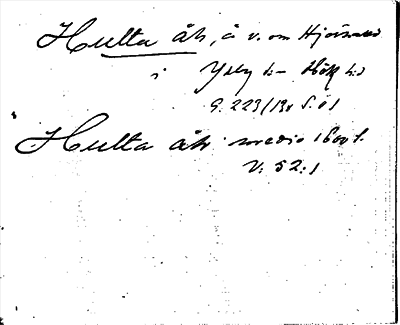 Hulta åh, å v. om Hjörnered
i Ysby sn Hök hd
9.223/130 S.Ö1
Hulta åh medio 1600 t.
V: 52:1